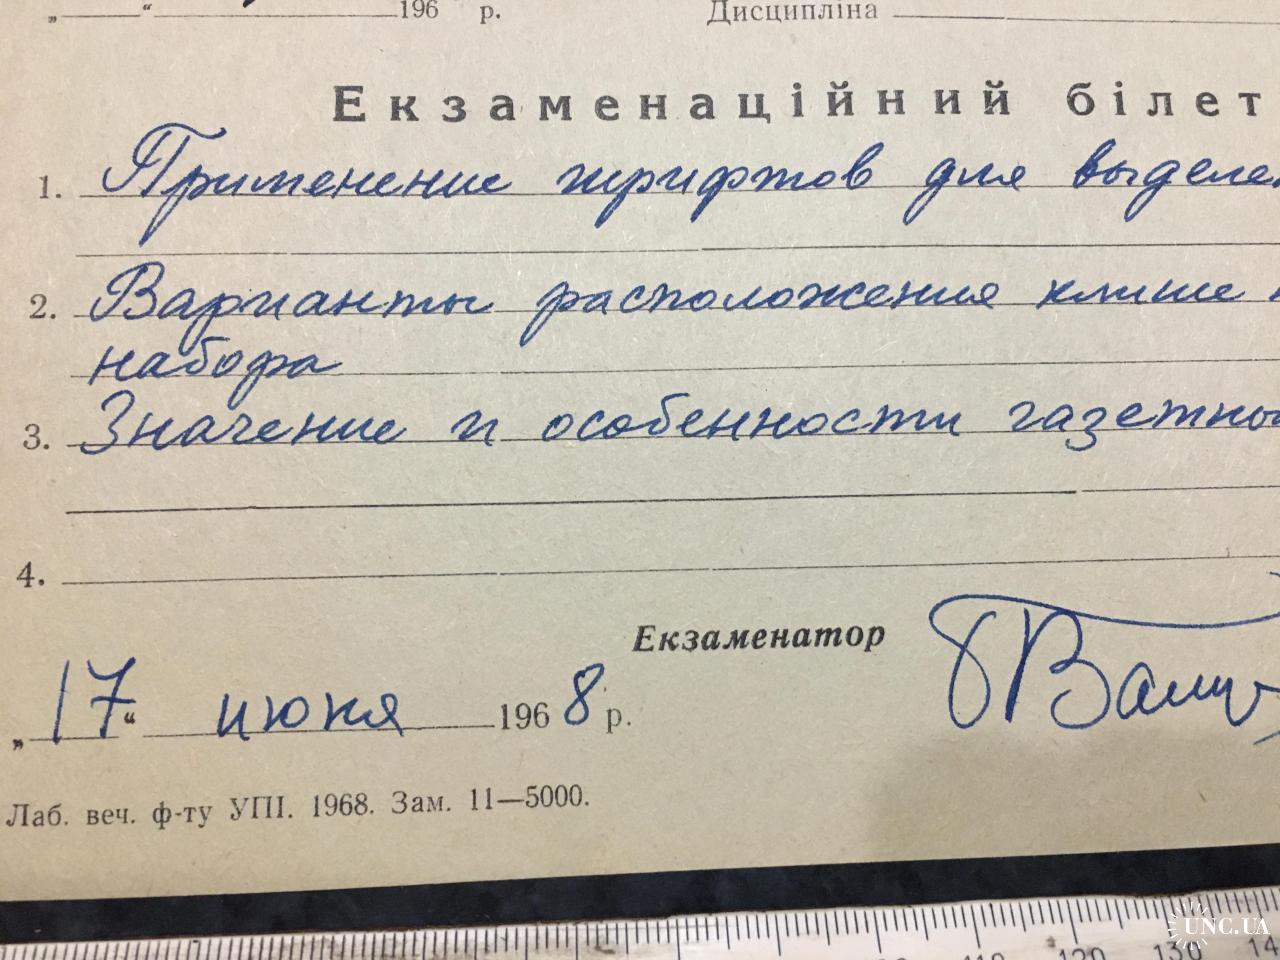 „ “ 196 р. Дисципліна
Екзаменаційний білет
1. Применение шрифтов для выделе
2. Варианты расположения клише
набора
3. Значение и особенности газетно
4.
Екзаменатор
„17“ июня 1968 р.
Лаб. веч. ф-ту УПІ. 1968. Зам. 11—5000.
110 120 130 14
UNC.UA